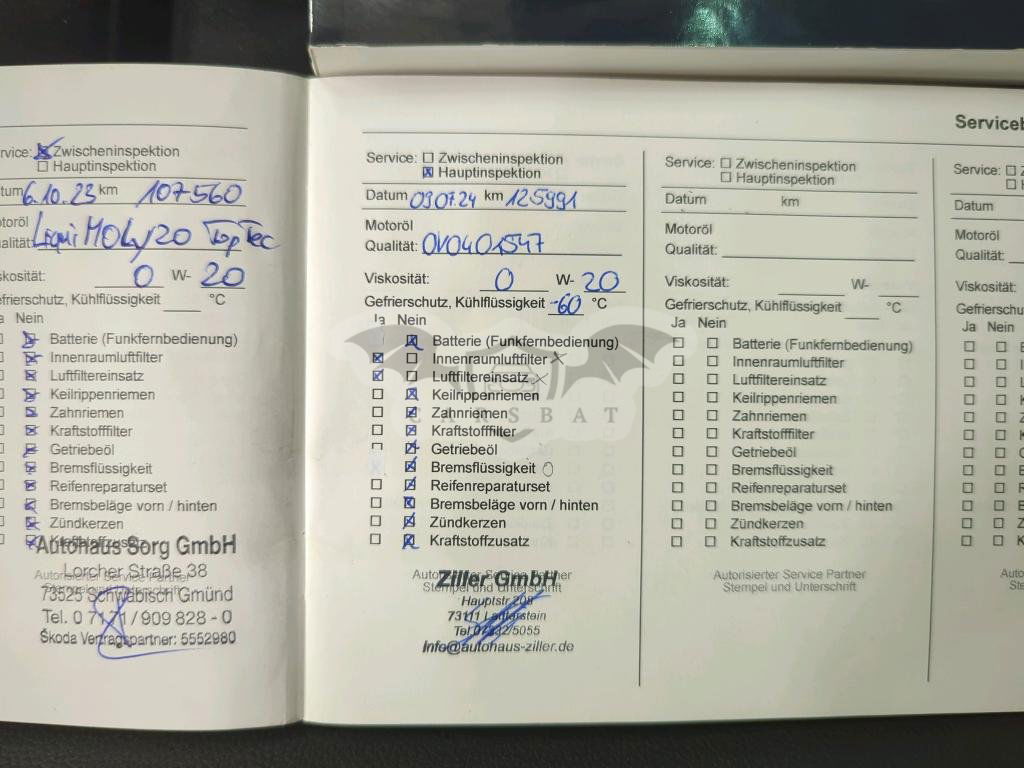 Service
rvice: Zwischeninspektion
Hauptinspektion
tum 6.10.23 km 107560
otoröl
alität: Liqui MOLy 20 TopTec
skosität: 0 W- 20
efrierschutz, Kühlflüssigkeit °C
a Nein
Batterie (Funkfernbedienung)
Innenraumluftfilter
Luftfiltereinsatz
Keilrippenriemen
Zahnriemen
Kraftstofffilter
Getriebeöl
Bremsflüssigkeit
Reifenreparaturset
Bremsbeläge vorn / hinten
Zündkerzen
Kraftstoffzusatz
Autohaus Sorg GmbH
Lorcher Straße 38
Autorisierter Service Partner
73525 Schwäbisch Gmünd
Tel. 0 7171 / 909 828 - 0
Škoda Vertragspartner: 5552980
Service: Zwischeninspektion
Hauptinspektion
Datum 090724 km 125991
Motoröl
Qualität: 0V0401547
Viskosität: 0 W- 20
Gefrierschutz, Kühlflüssigkeit -60 °C
Ja Nein
Batterie (Funkfernbedienung)
Innenraumluftfilter
Luftfiltereinsatz
Keilrippenriemen
CARSBAT
Zahnriemen
Kraftstofffilter
Getriebeöl
Bremsflüssigkeit
Reifenreparaturset
Bremsbeläge vorn / hinten
Zündkerzen
Kraftstoffzusatz
Autorisierter Service Partner
Ziller GmbH
Stempel und Unterschrift
Hauptstr 208
73111 Lauterstein
Tel 07332/5055
Info@autohaus-ziller.de
Service: Zwischeninspektion
Hauptinspektion
Datum km
Motoröl
Qualität:
Viskosität: W-
Gefrierschutz, Kühlflüssigkeit °C
Ja Nein
Batterie (Funkfernbedienung)
Innenraumluftfilter
Luftfiltereinsatz
Keilrippenriemen
Zahnriemen
Kraftstofffilter
Getriebeöl
Bremsflüssigkeit
Reifenreparaturset
Bremsbeläge vorn / hinten
Zündkerzen
Kraftstoffzusatz
Autorisierter Service Partner
Stempel und Unterschrift
Service: Z
H
Datum
Motoröl
Qualität:
Viskosität:
Gefriersch
Ja Nein
B
I
L
K
Z
K
G
B
R
B
Z
K
Auto
St